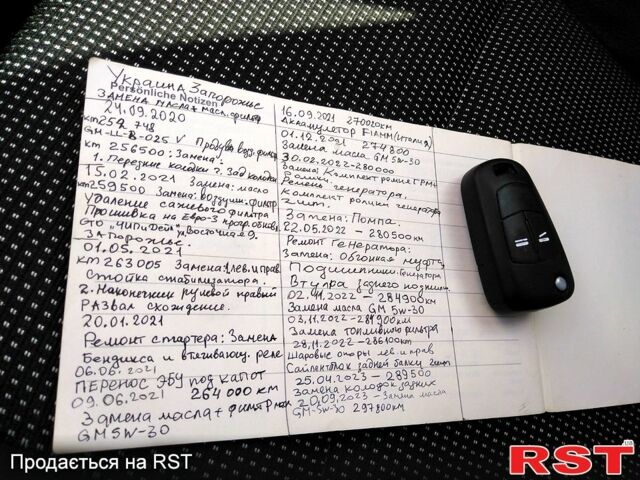 Украина Запорожье
Persönliche Notizen
Замена масла + масл. фильтр
24.09.2020
км 254 748
GM-LL-B-025 V Пробка возд. фильтр
км 256500: Замена:
1. Передние колодки 2. Зад колодки
15.02.2021 Замена: масло
км 259500 Замена: Воздушн. фильтр
Удаление сажевого фильтра
Прошивка на Евро-3
СТО „ЧИПиДет" ул. Восточная 9.
Запорожье.
01.05.2021
км 263005 Замена: 1 лев. и прав
Стойка стабилизатора.
2. Наконечник рулевой правый
РАЗвал схождение.
20.01.2021
Ремонт стартера: Замена
Бендикса и втягивающ. реле
06.06.2021
ПЕРЕНОС ЭБУ под капот
09.06.2021 264 000 км
Замена масла + фильтр масл
GM 5W-30
16.09.2021 270020км
Аккамулетор FIAMM (Италия)
01.12.2021 274800
Замена масла GM 5w-30
30.02.2022-280000
Замена: Комплект ремня ГРМ+
Ролики.
Ремень генератора.
Комплект ролики генератора
2 шт.
Замена: Помпа.
22.05.2022 - 280500км
Ремонт генератора:
Замена: Обгонная муфта,
Подшипники: генератора
Втулка заднего подшипн.
02.11.2022 - 284900км
Замена масла GM 5w-30
03.11.2022 - 284900км
Замена топливного фильтра
28.11.2022 - 286100км
Шаровые опоры лев. и прав
Сайлентблок задней балки 2 шт
25.04.2023 - 289500
Замена колодок задних
20.09.2023 - Замена масла
GM-5W-30 297800км
Продається на RST
RST